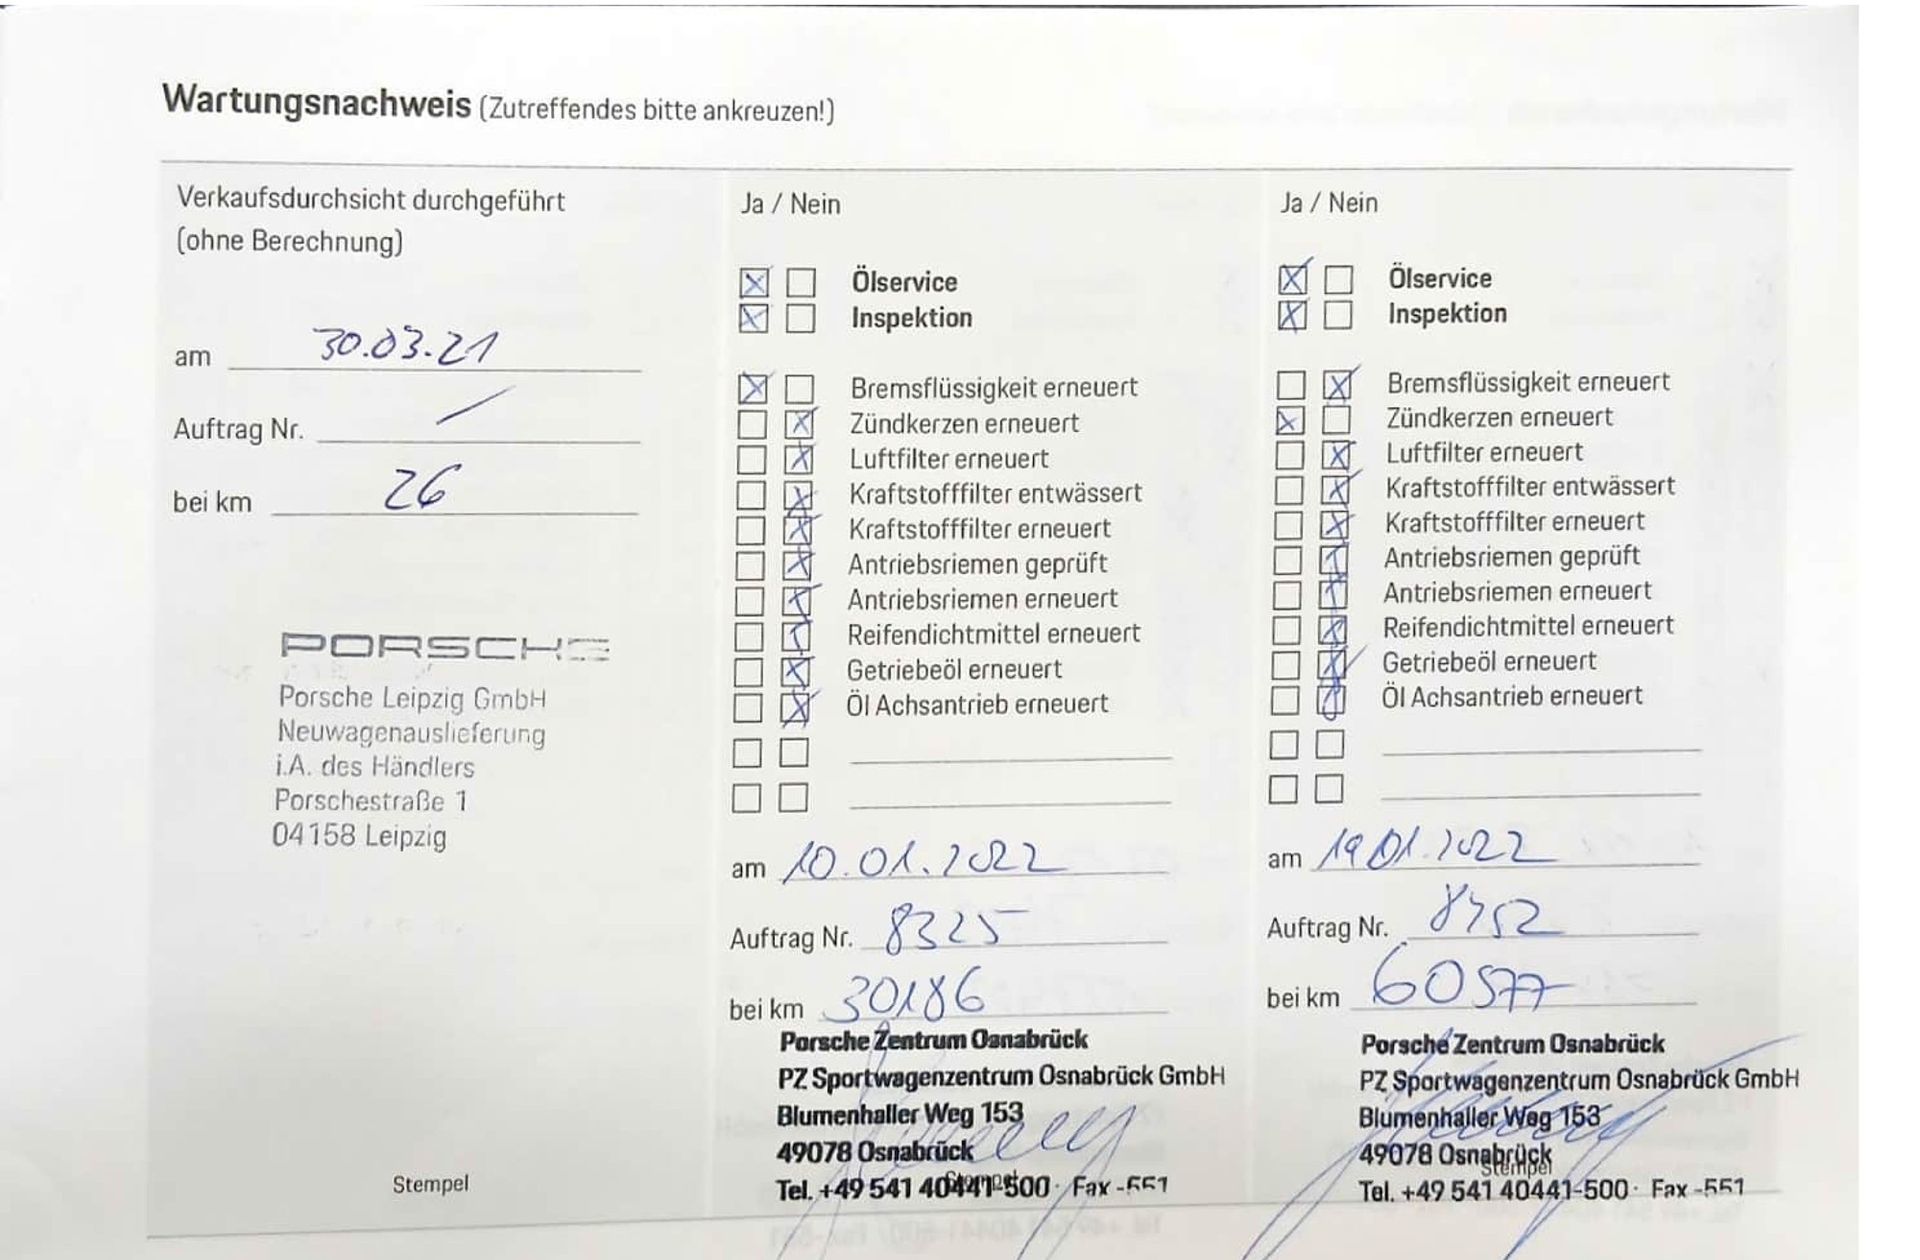 Wartungsnachweis (Zutreffendes bitte ankreuzen!)
Verkaufsdurchsicht durchgeführt
(ohne Berechnung)
am 30.03.21
Auftrag Nr. /
bei km 26
PORSCHE
Porsche Leipzig GmbH
Neuwagenauslieferung
i.A. des Händlers
Porschestraße 1
04158 Leipzig
Stempel
Ja / Nein
Ölservice
Inspektion
Bremsflüssigkeit erneuert
Zündkerzen erneuert
Luftfilter erneuert
Kraftstofffilter entwässert
Kraftstofffilter erneuert
Antriebsriemen geprüft
Antriebsriemen erneuert
Reifendichtmittel erneuert
Getriebeöl erneuert
Öl Achsantrieb erneuert
am 10.01.2022
Auftrag Nr. 8325
bei km 30186
Porsche Zentrum Osnabrück
PZ Sportwagenzentrum Osnabrück GmbH
Blumenhaller Weg 153
49078 Osnabrück
Stempel
Tel. +49 541 40441-500 · Fax -551
Ja / Nein
Ölservice
Inspektion
Bremsflüssigkeit erneuert
Zündkerzen erneuert
Luftfilter erneuert
Kraftstofffilter entwässert
Kraftstofffilter erneuert
Antriebsriemen geprüft
Antriebsriemen erneuert
Reifendichtmittel erneuert
Getriebeöl erneuert
Öl Achsantrieb erneuert
am 19.01.2022
Auftrag Nr. 8452
bei km 60577
Porsche Zentrum Osnabrück
PZ Sportwagenzentrum Osnabrück GmbH
Blumenhaller Weg 153
49078 Osnabrück
Stempel
Tel. +49 541 40441-500 · Fax -551